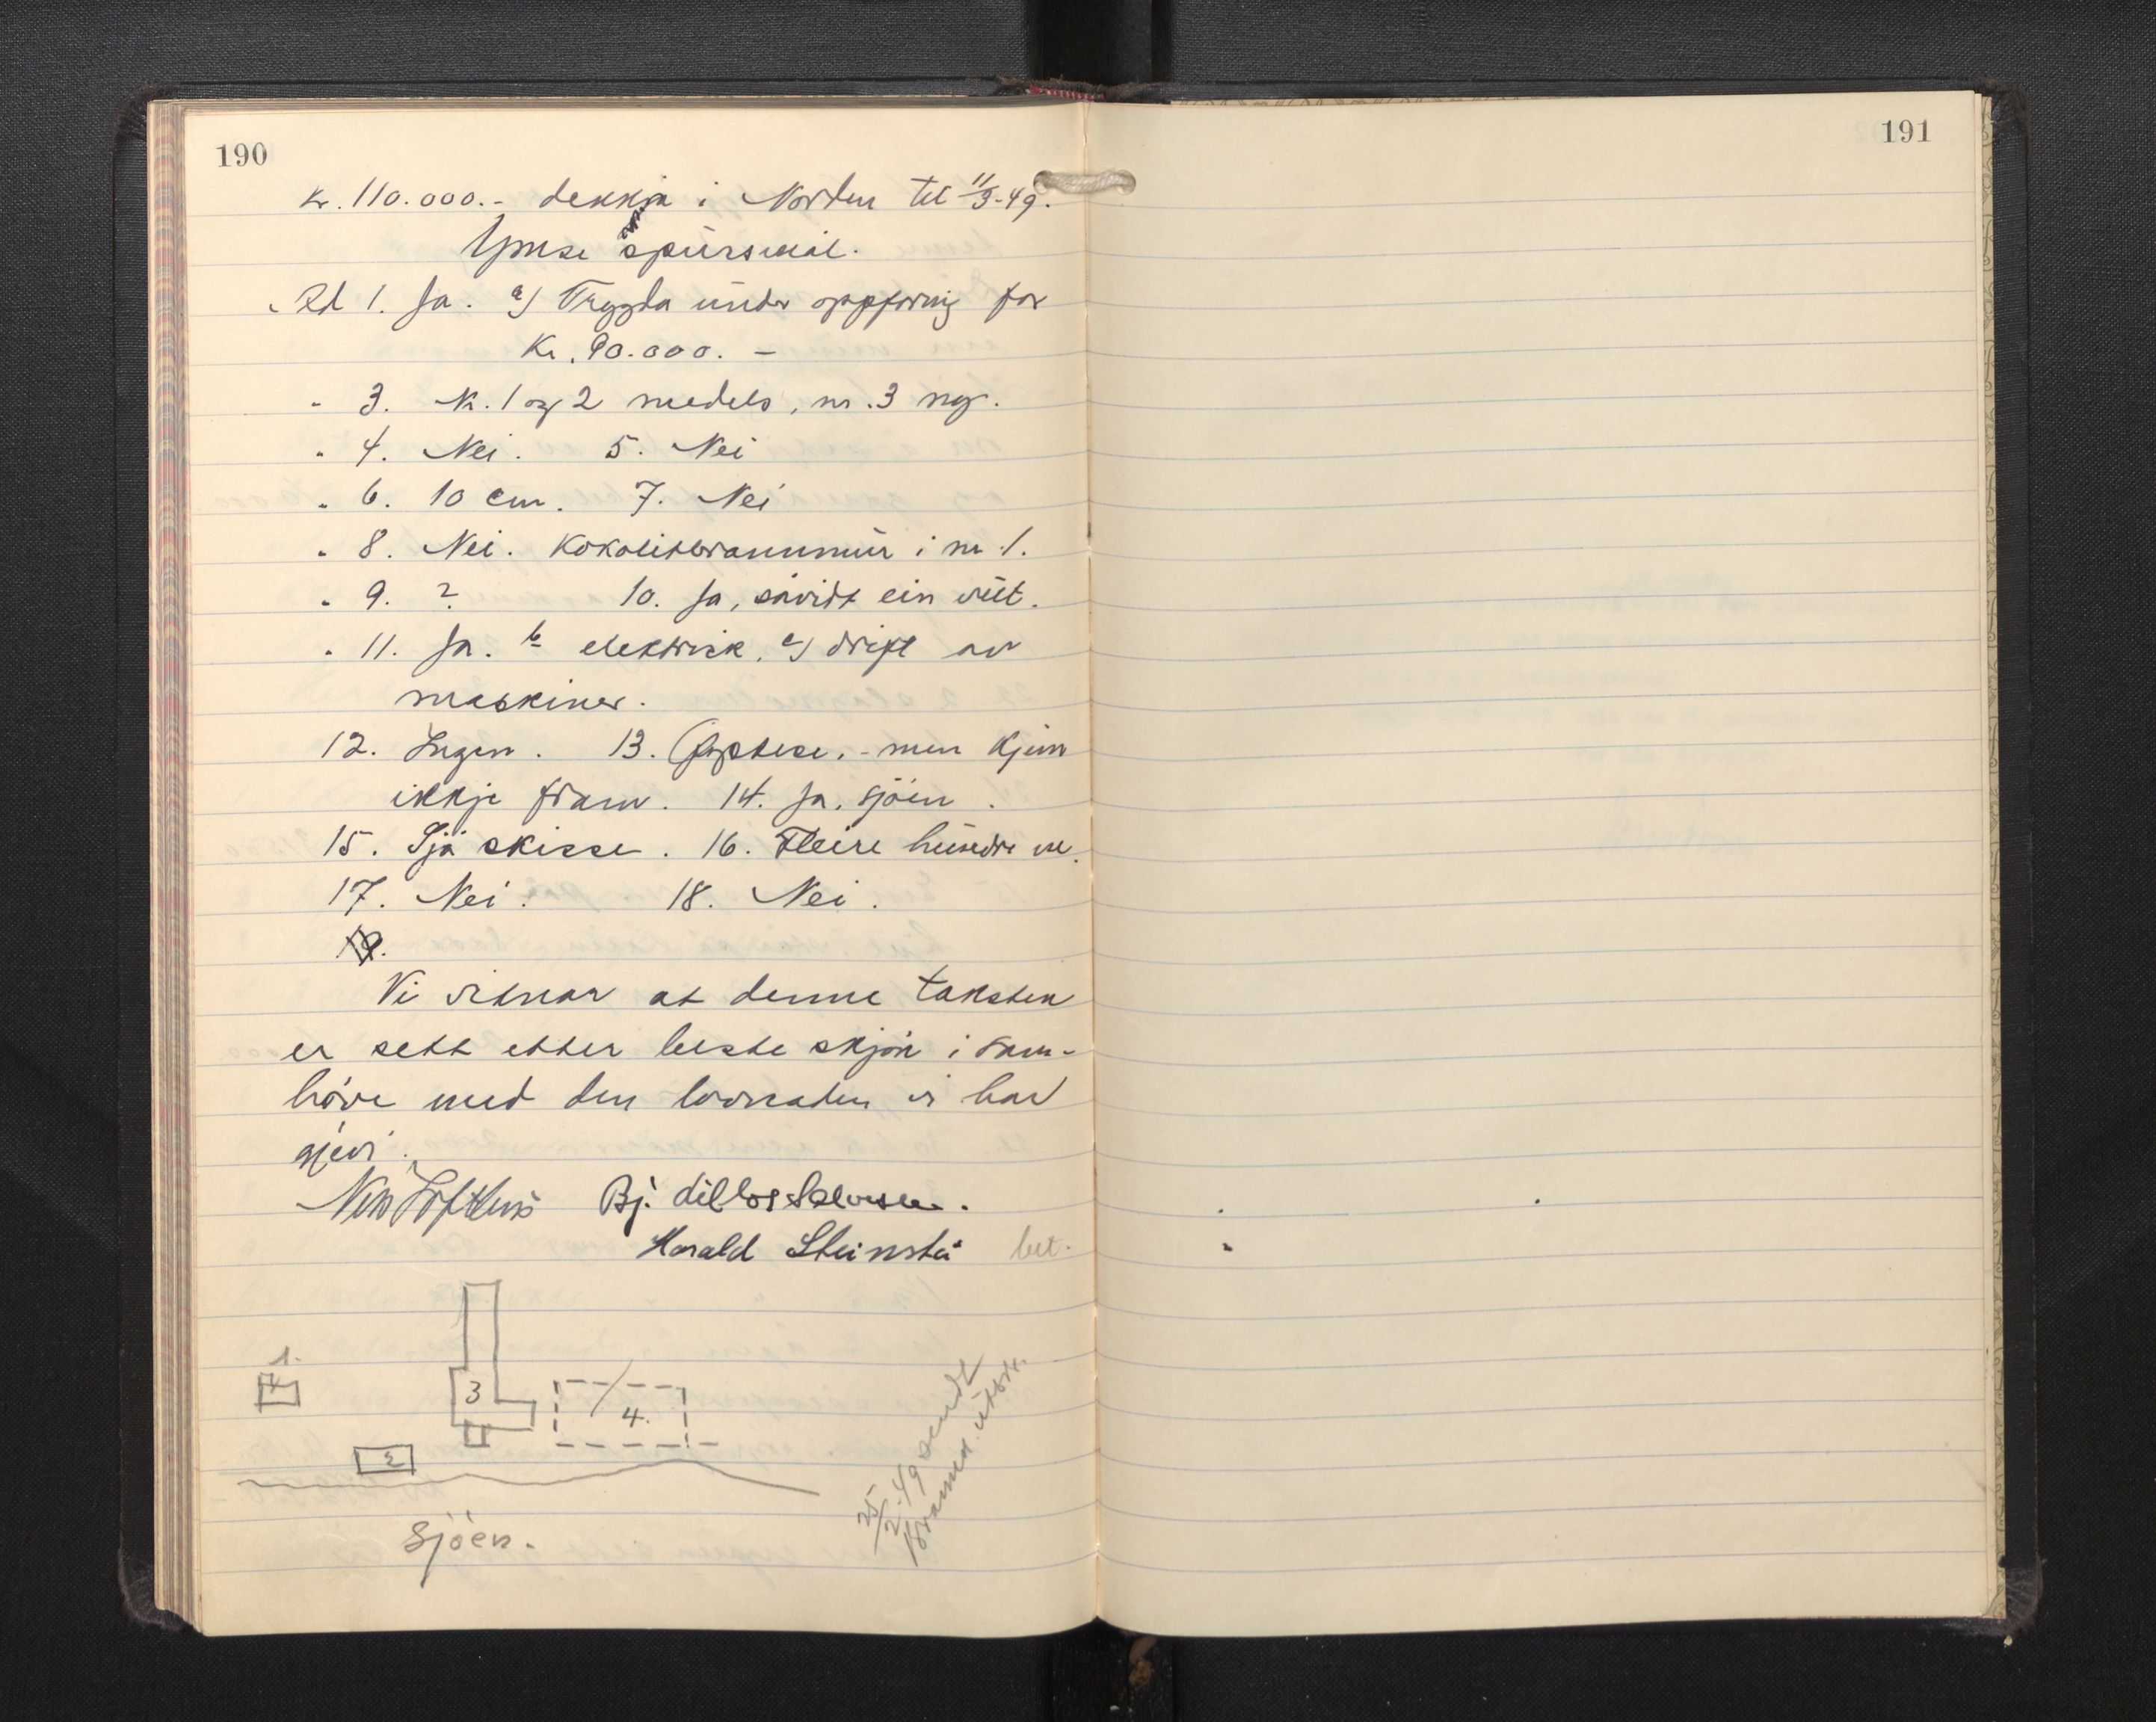 190
191
Kr. 110.000.- dekkja i Norden til 11/3-49.
Ymse spursmål.
Ad 1. Ja. a) Trygda under oppföring for
Kr. 90.000. -
" 3. Nr. 1 og 2 medels, nr. 3 ny.
" 4. Nei. 5. Nei
" 6. 10 cm. 7. Nei
" 8. Nei. Kokolitbrannmur i nr. 1.
" 9. ? 10. Ja, såvidt ein veit.
" 11. Ja. b elektrisk. c) drift av
maskiner.
12. Ingen. 13. - men kjem
ikkje fram. 14. Ja, sjöen.
15. Sjå skisse. 16. Fleire hundre m.
17. Nei. 18. Nei.
19.
Vi vitnar at denne taksten
er sett etter beste skjön i sam-
höve med den lovnaden vi har
gjevi.
Nils Lofthus Bj.
Harald Steinstö
1.
3
4.
2
Sjöen.
25/2-49 sendt